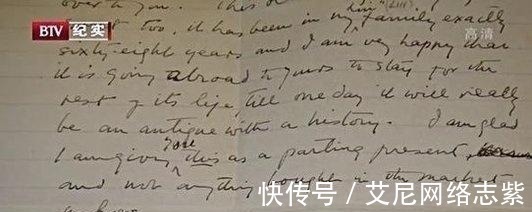 BTV 纪实
高清
over to you. This
too, it has been in my family exactly
sixty-eight years and I am very happy that
it is going abroad to yours to stay for the
rest of its life, till one day it will really
be an antique with a history. I am glad
I am giving you this as a parting present,
and not anything bought in the market
快传号 / 艾尼网络志紫